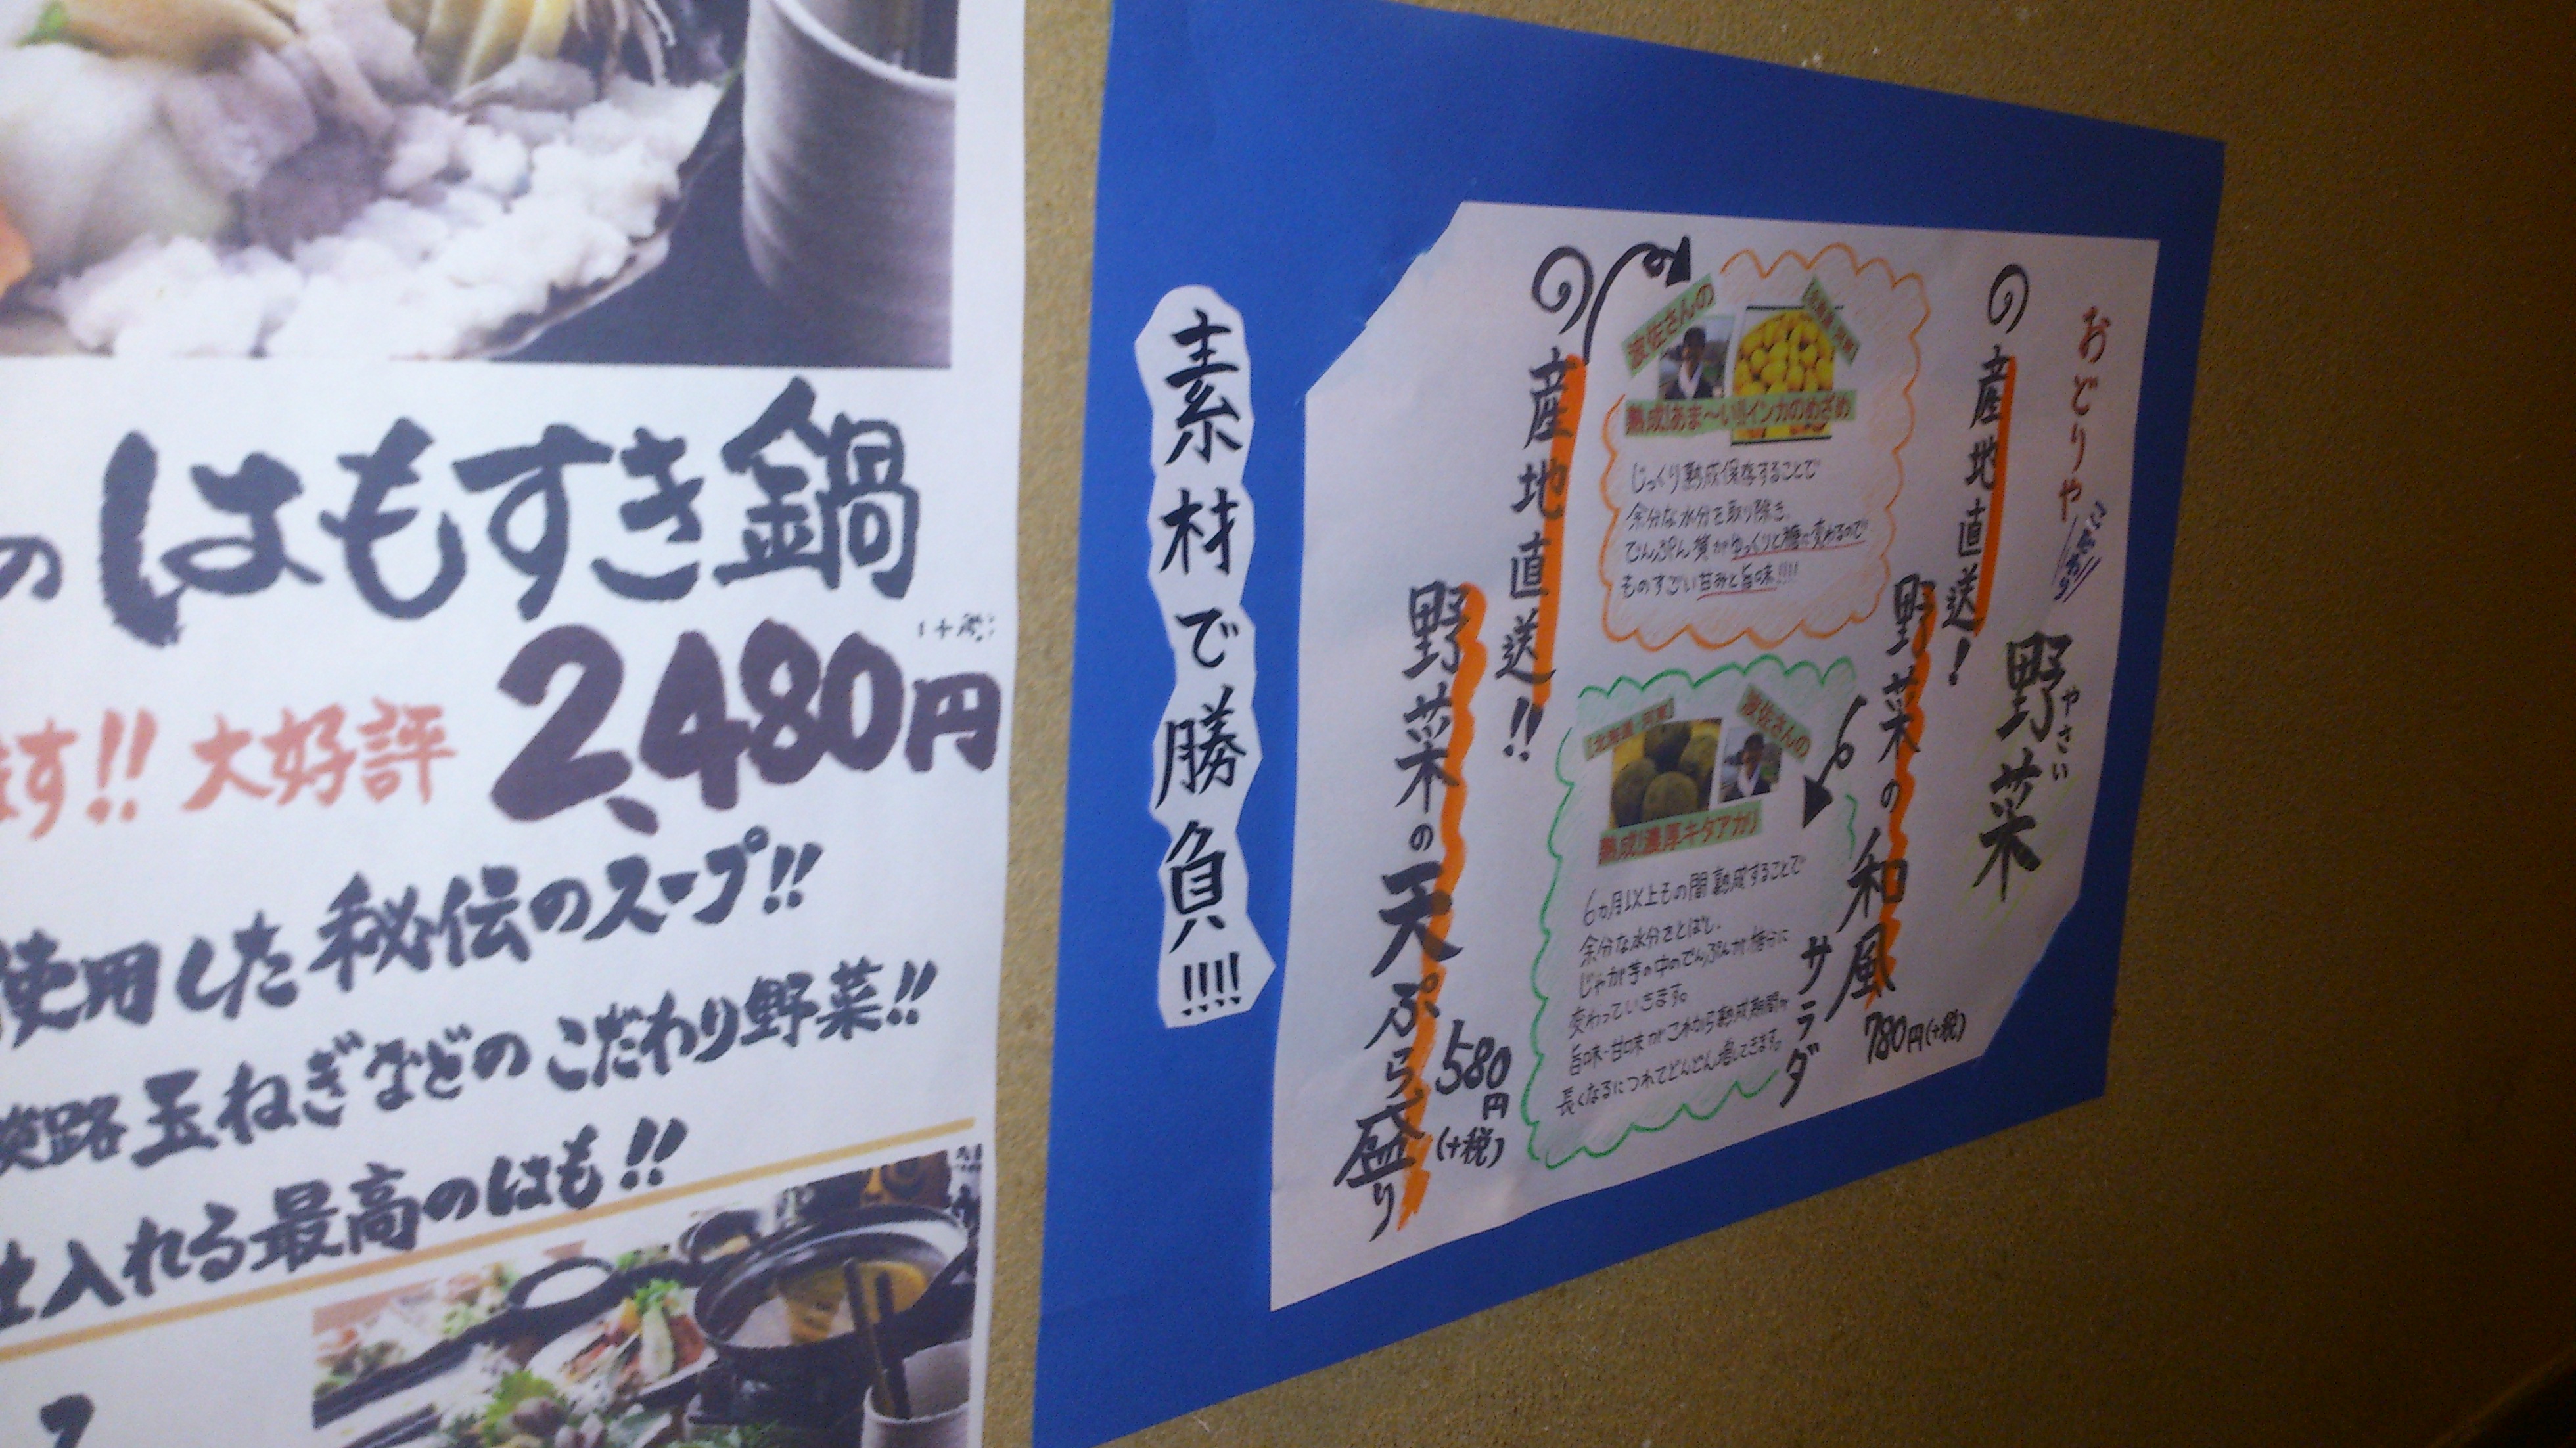 の はもすき鍋
(+税)
ます!! 大好評 2,480円
使用した秘伝のスープ!!
淡路玉ねぎなどのこだわり野菜!!
仕入れる最高のはも!!
素材で勝負!!!!
おどりや
こだわり
野菜
やさい
の産地直送!
野菜の和風
サラダ
780円(+税)
波佐さんの
熟成!あま〜い!!インカのめざめ
じっくり熟成保存することで
余分な水分を取り除き、
でんぷん質がゆっくりと糖に変わるので
ものすごい甘みと旨味!!!!
波佐さんの
熟成!濃厚キタアカリ
6カ月以上もの間熟成することで
余分な水分をとばし、
じゃが芋の中のでんぷんが糖分に
変わっていきます。
旨味・甘味がこれから熟成期間が
長くなるにつれてどんどん増してきます。
の産地直送!!
野菜の天ぷら盛り
580円
(+税)